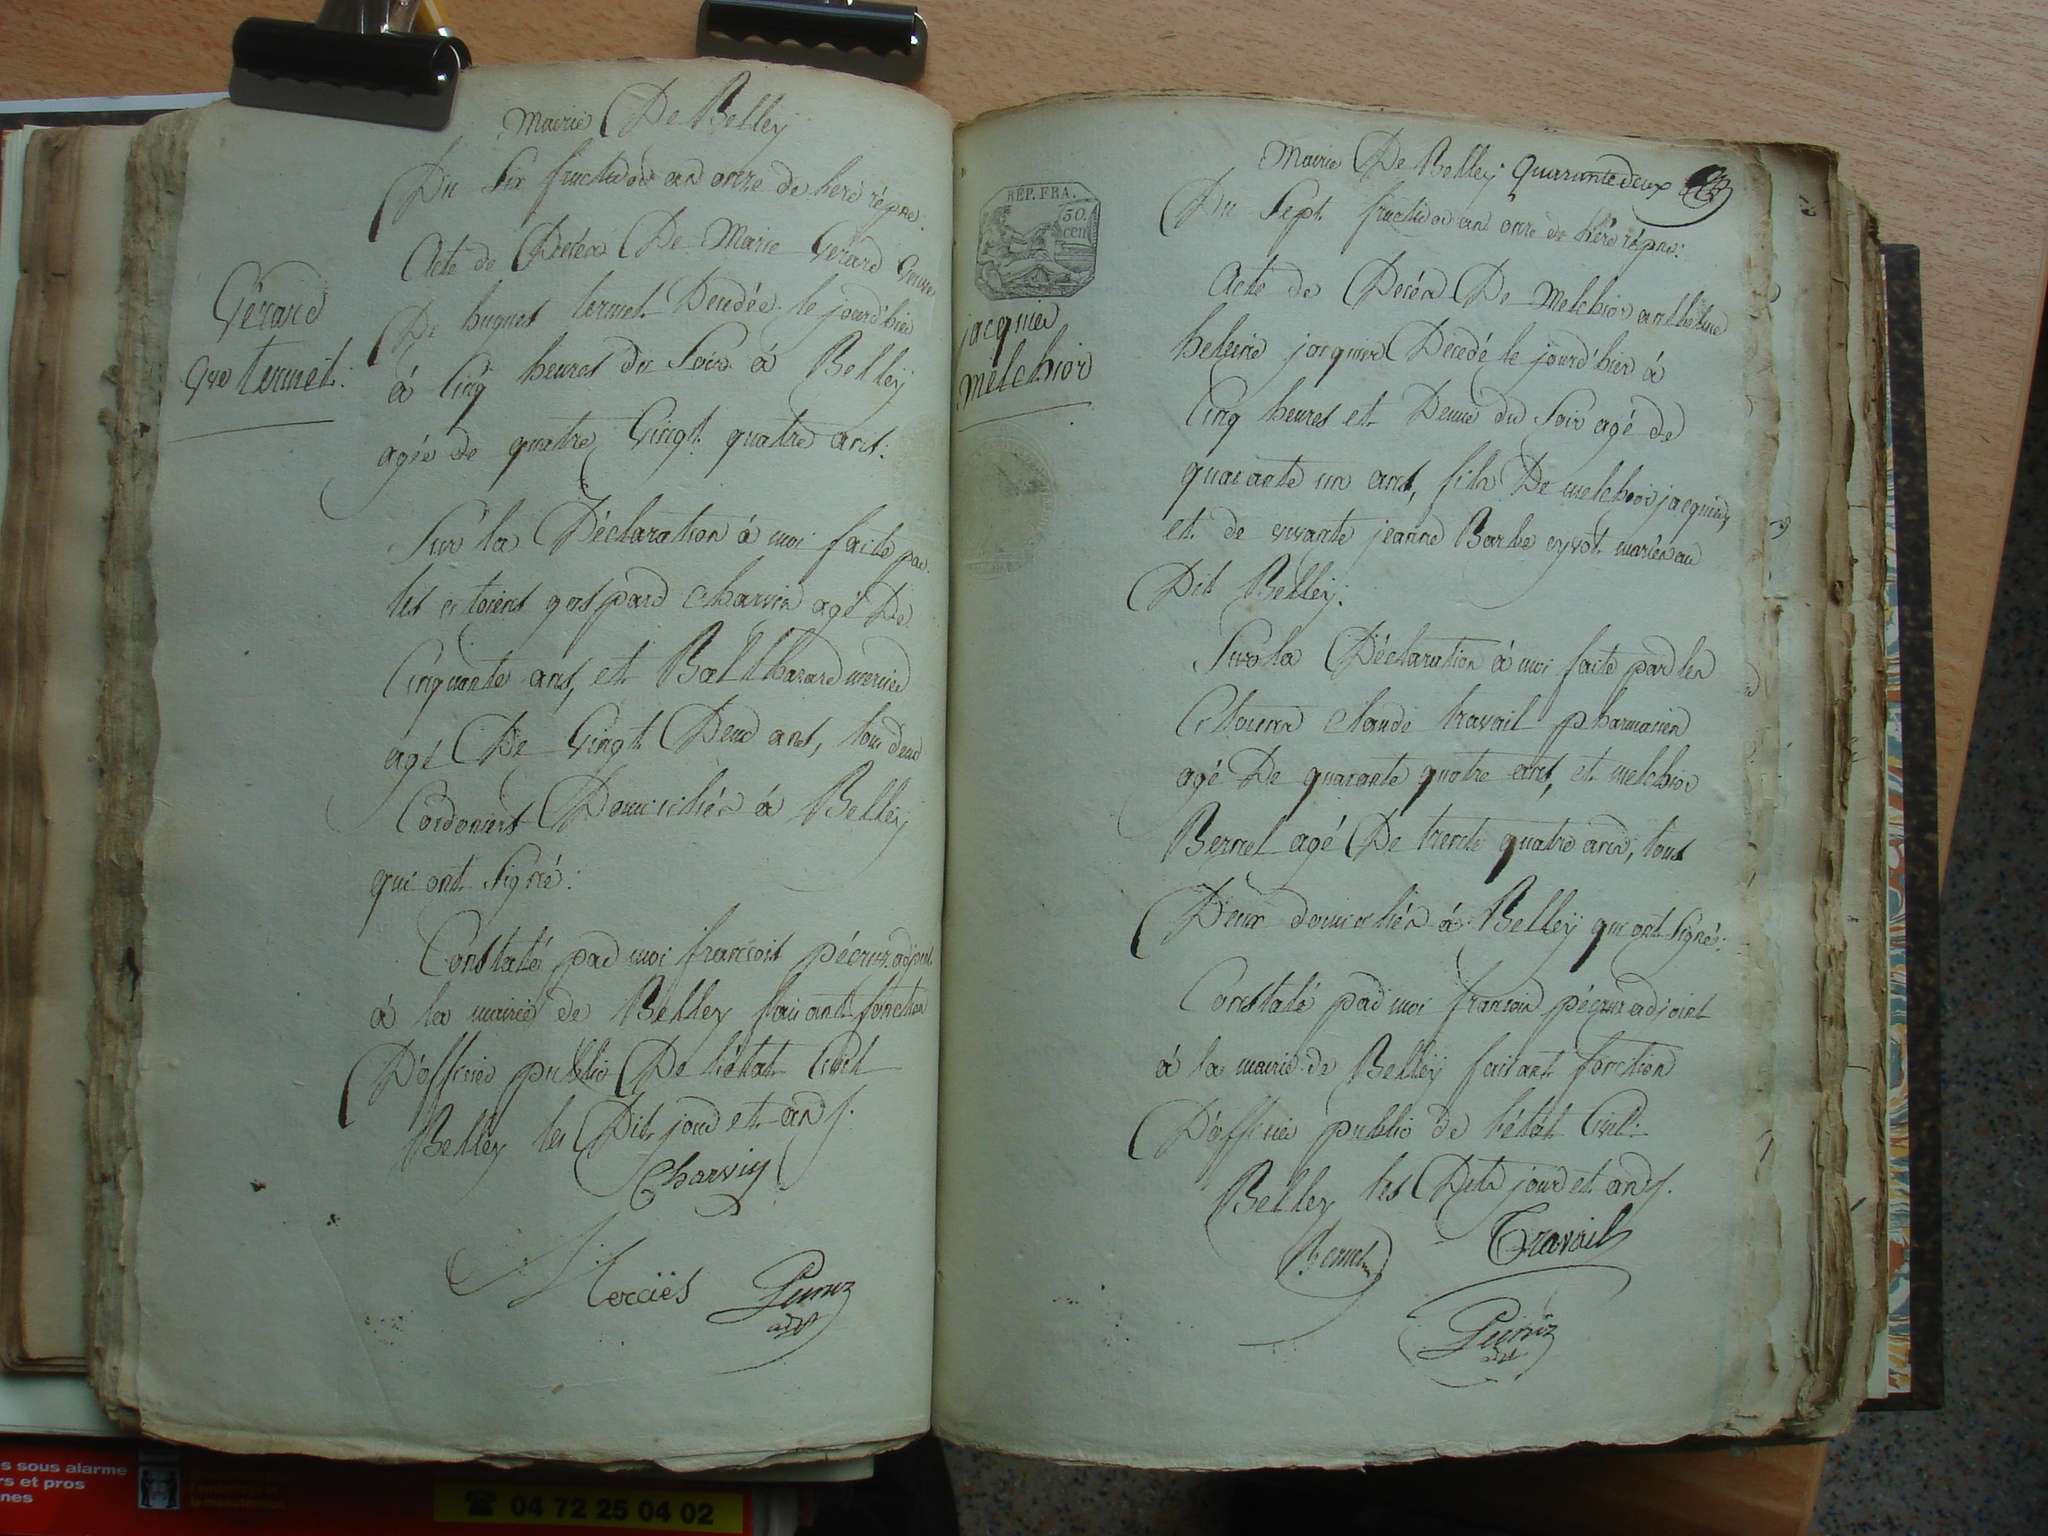 Mairie De Belley
Du Six fructidor an onze de l'ere répne:
Acte de Décéz De Marie Gérard veuve
De hugues termet Decedée le jourd'hier
à Cinq heures du Soir à Belleÿ
agée de quatre Vingt quatre ans:
Gérard
vve termet:
Sur la Déclaration à moi faite par
les citoiens gaspard charvin agé De
Cinquante ans, et Balthazard mercier
agé De Vingt Deux ans, tous deux
Cordoniers Domiciliéz à Belleÿ
qui ont Signé:
Constaté par moi françois pécruz adjoint
à la mairie de Belley faisant fonction
D'officier public De l'état Civil
Belley les Dits jour et an
Charvin
Merciés
Pécruz
adjt
Mairie De Belleÿ quarante deux
RÉP. FRA.
50
cen
Du Sept fructidor an onze de l'ére répne:
jacquier
melchior
Acte de Decéz De Melchior anthelme
heleine jacquier Decedé le jourd'hier à
Cinq heures et Demie du Soir agé de
quarante un ans, fils De melchior jacquier,
et de vivante jeanne Barbe eyvot mariéz au
Dit Belleÿ.
Sur la Déclaration à moi faite par les
Citoiens claude travail pharmacien
agé De quarante quatre ans, et melchior
Bernel agé De trente quatre ans, tous
Deux domiciliéz à Belleÿ qui ont Signé:
Constaté par moi françois pécruz adjoint
à la mairie de Belleÿ faisant fonction
D'officier public de l'état Civil:
Belley les Dits jour et an
Bernel
Travail
Pécruz
adjt
s sous alarme
rs et pros
nes
04 72 25 04 02